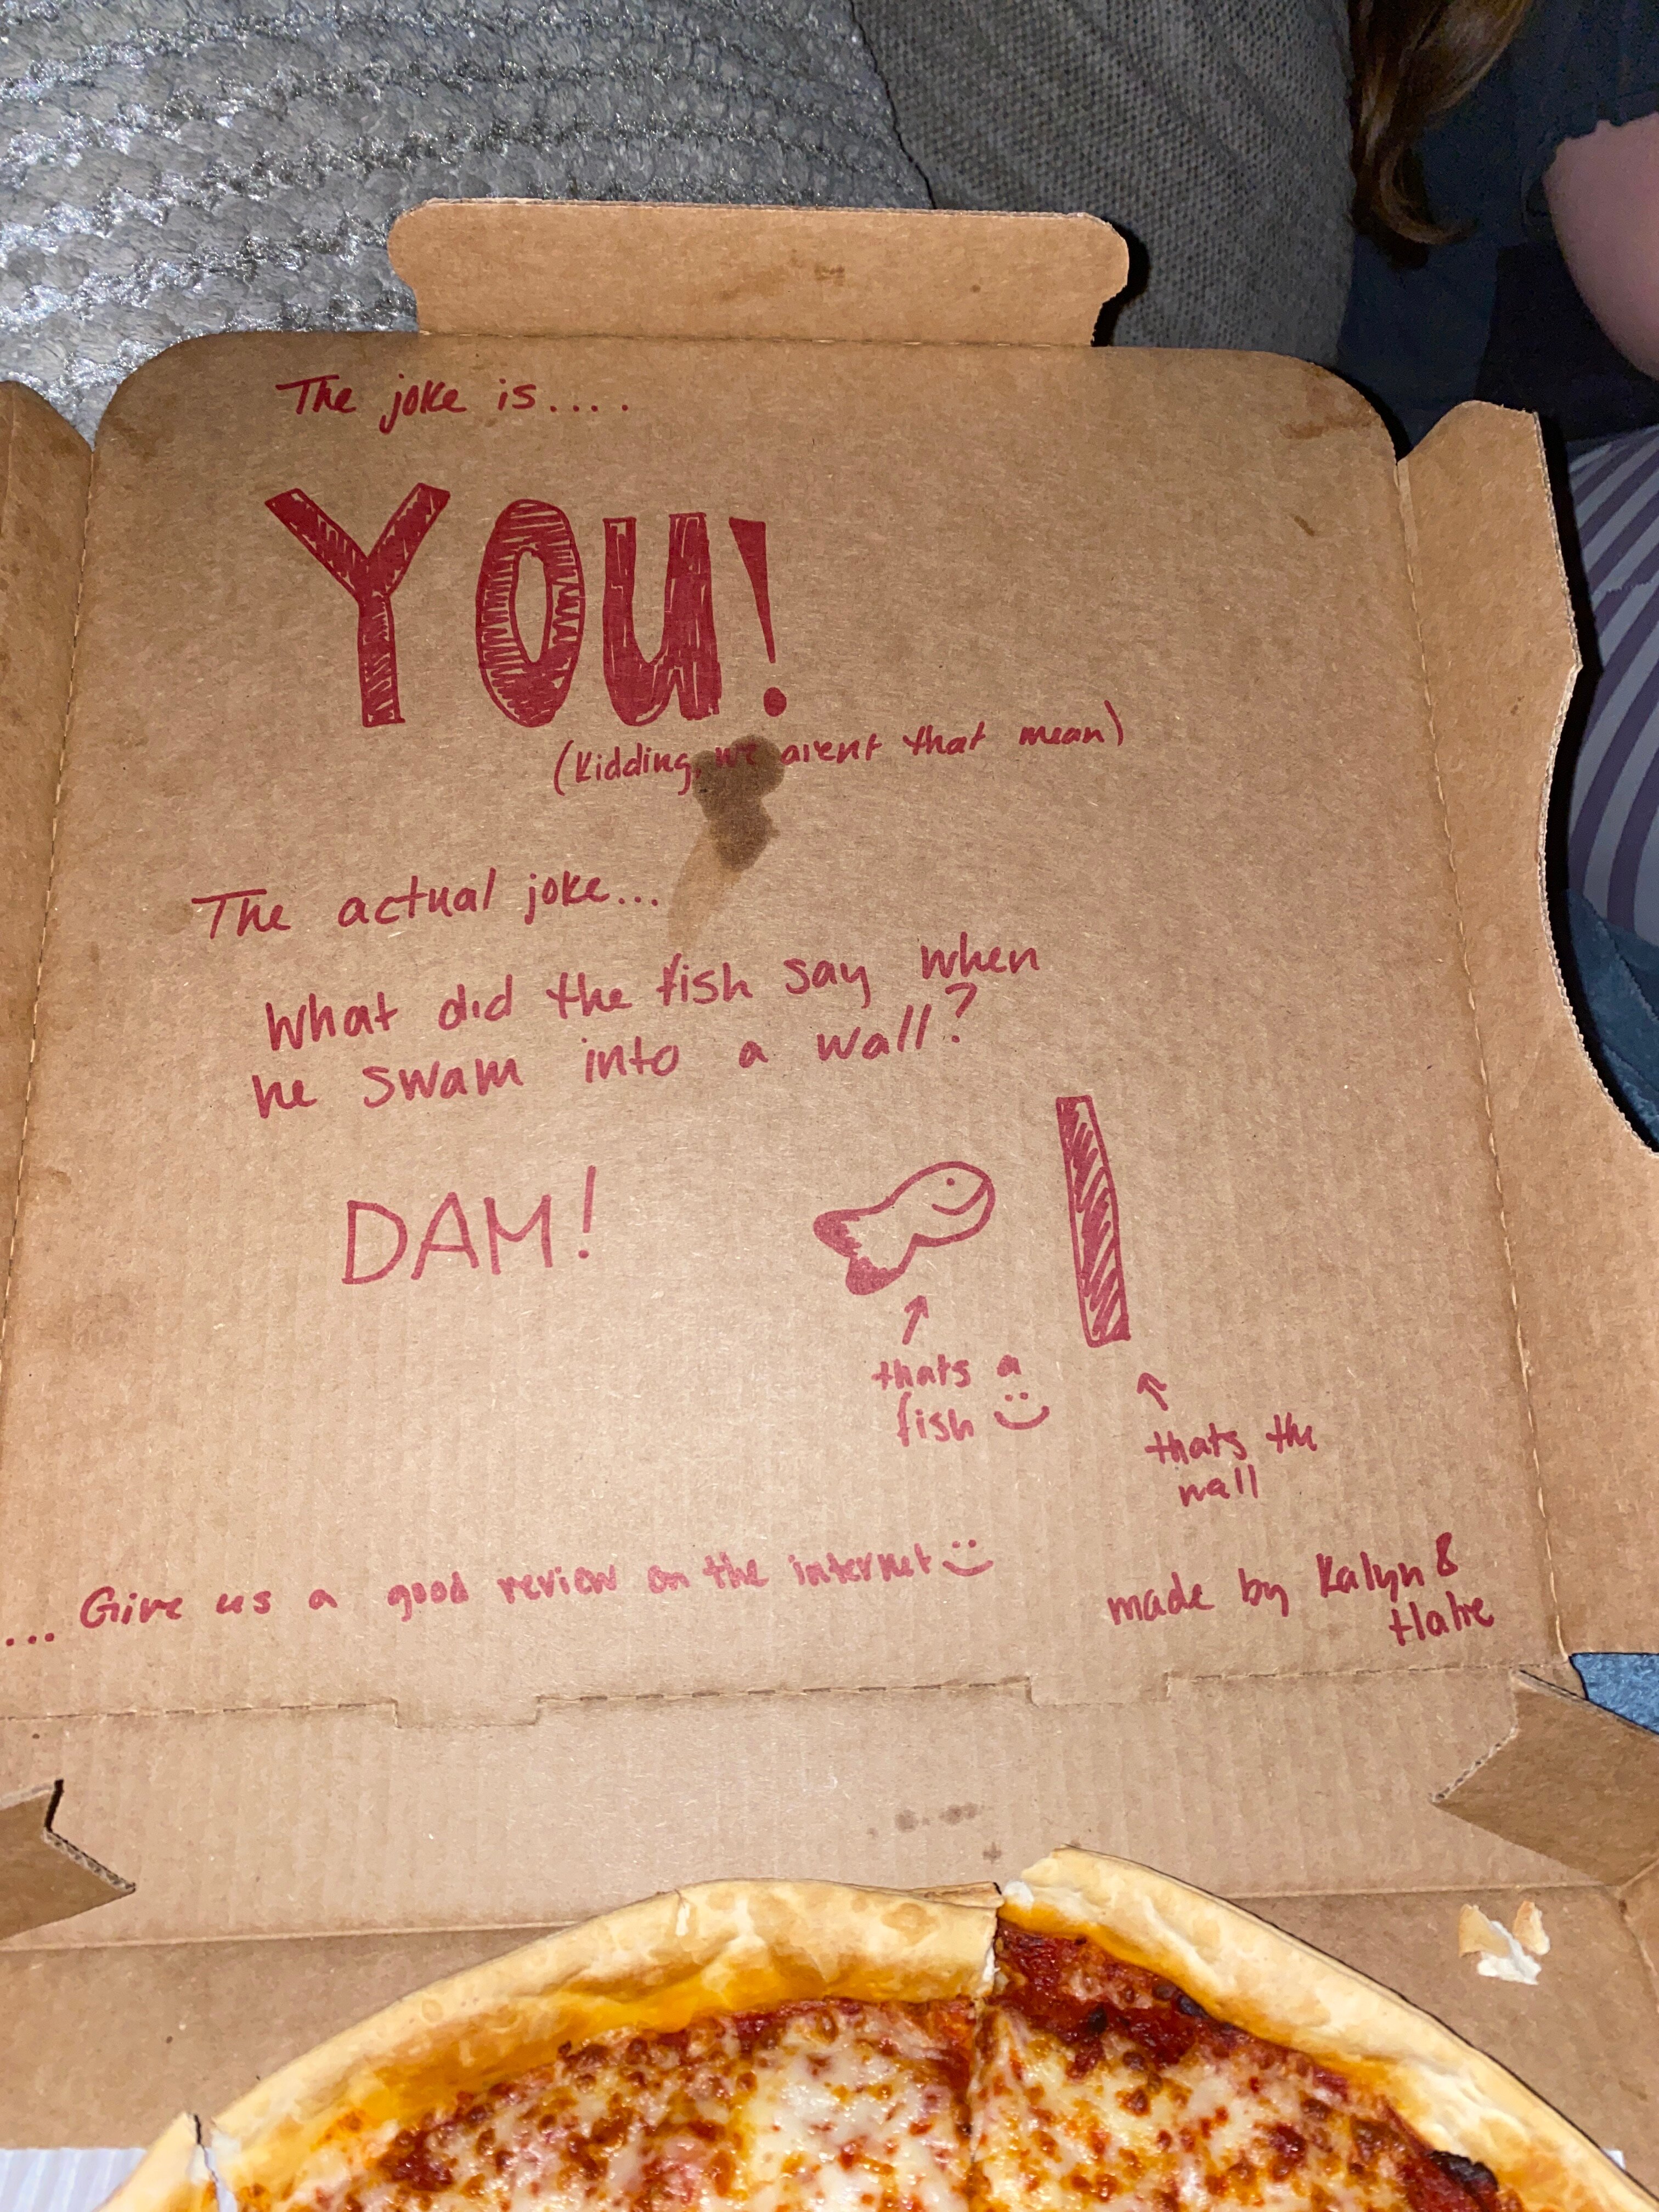 The joke is....
YOU!
(Kidding, we arent that mean)
The actual joke...
What did the fish say when
he swam into a wall?
DAM!
thats a
fish
thats the
wall
... Give us a good review on the internet
made by Kalyn &